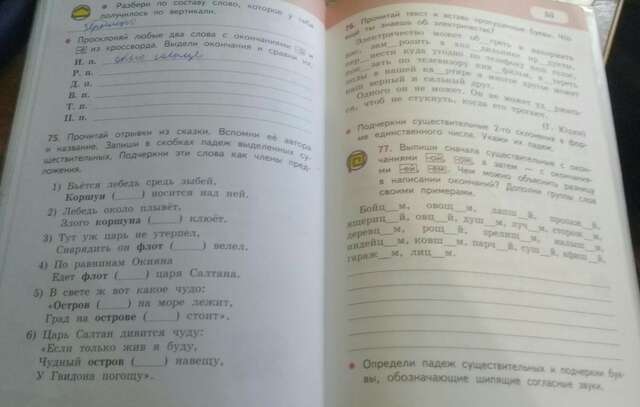 ● Разбери по составу слово, которое у тебя
получилось по вертикали.
● Просклоняй любые два слова с окончаниями
из кроссворда. Выдели окончания и сравни их.
И. п.
Р. п.
Д. п.
В. п.
Т. п.
П. п.
75. Прочитай отрывки из сказки. Вспомни её автора
и название. Запиши в скобках падеж выделенных су-
ществительных. Подчеркни эти слова как члены пред-
ложения.
1) Бьётся лебедь средь зыбей,
Коршун (____) носится над ней.
2) Лебедь около плывёт,
Злого коршуна (____) клюёт.
3) Тут уж царь не утерпел,
Снарядить он флот (____) велел.
4) По равнинам Окияна
Едет флот (____) царя Салтана.
5) В свете ж вот какое чудо:
«Остров (____) на море лежит,
Град на острове (____) стоит».
6) Царь Салтан дивится чуду:
«Если только жив я буду,
Чудный остров (____) навещу,
У Гвидона погощу».
76. Прочитай текст и вставь пропущенные буквы. Что
ещё ты знаешь об электричестве?
Электричество может об__греть и заморозить
нести куда угодно по телефону твой голос,
зать по телевизору
воды в нашей кв__ртире и многое другое может
наш верный и сильный друг.
Одного он не может. Он не может уд__ржать-
ся, чтоб не стукнуть, когда его трогают.
(Г. Юдин)
● Подчеркни существительные 2-го склонения в фор-
ме единственного числа. Укажи их падеж.
77. Выпиши сначала существительные с окон-
чаниями -ой, -ом, а затем — с окончания-
ми -ей, -ем. Чем можно объяснить разницу
в написании окончаний? Дополни группы слов
своими примерами.
Бойц__м, овощ__м,
ящериц__й, овц__й, душ__м, луч__м, сторож__м,
рощ__й,
индейц__м, ковш__м, парч__й, суш__й,
гараж__м, лиц__м.
● Определи падеж существительных и подчерки бук-
вы, обозначающие шипящие согласные звуки.